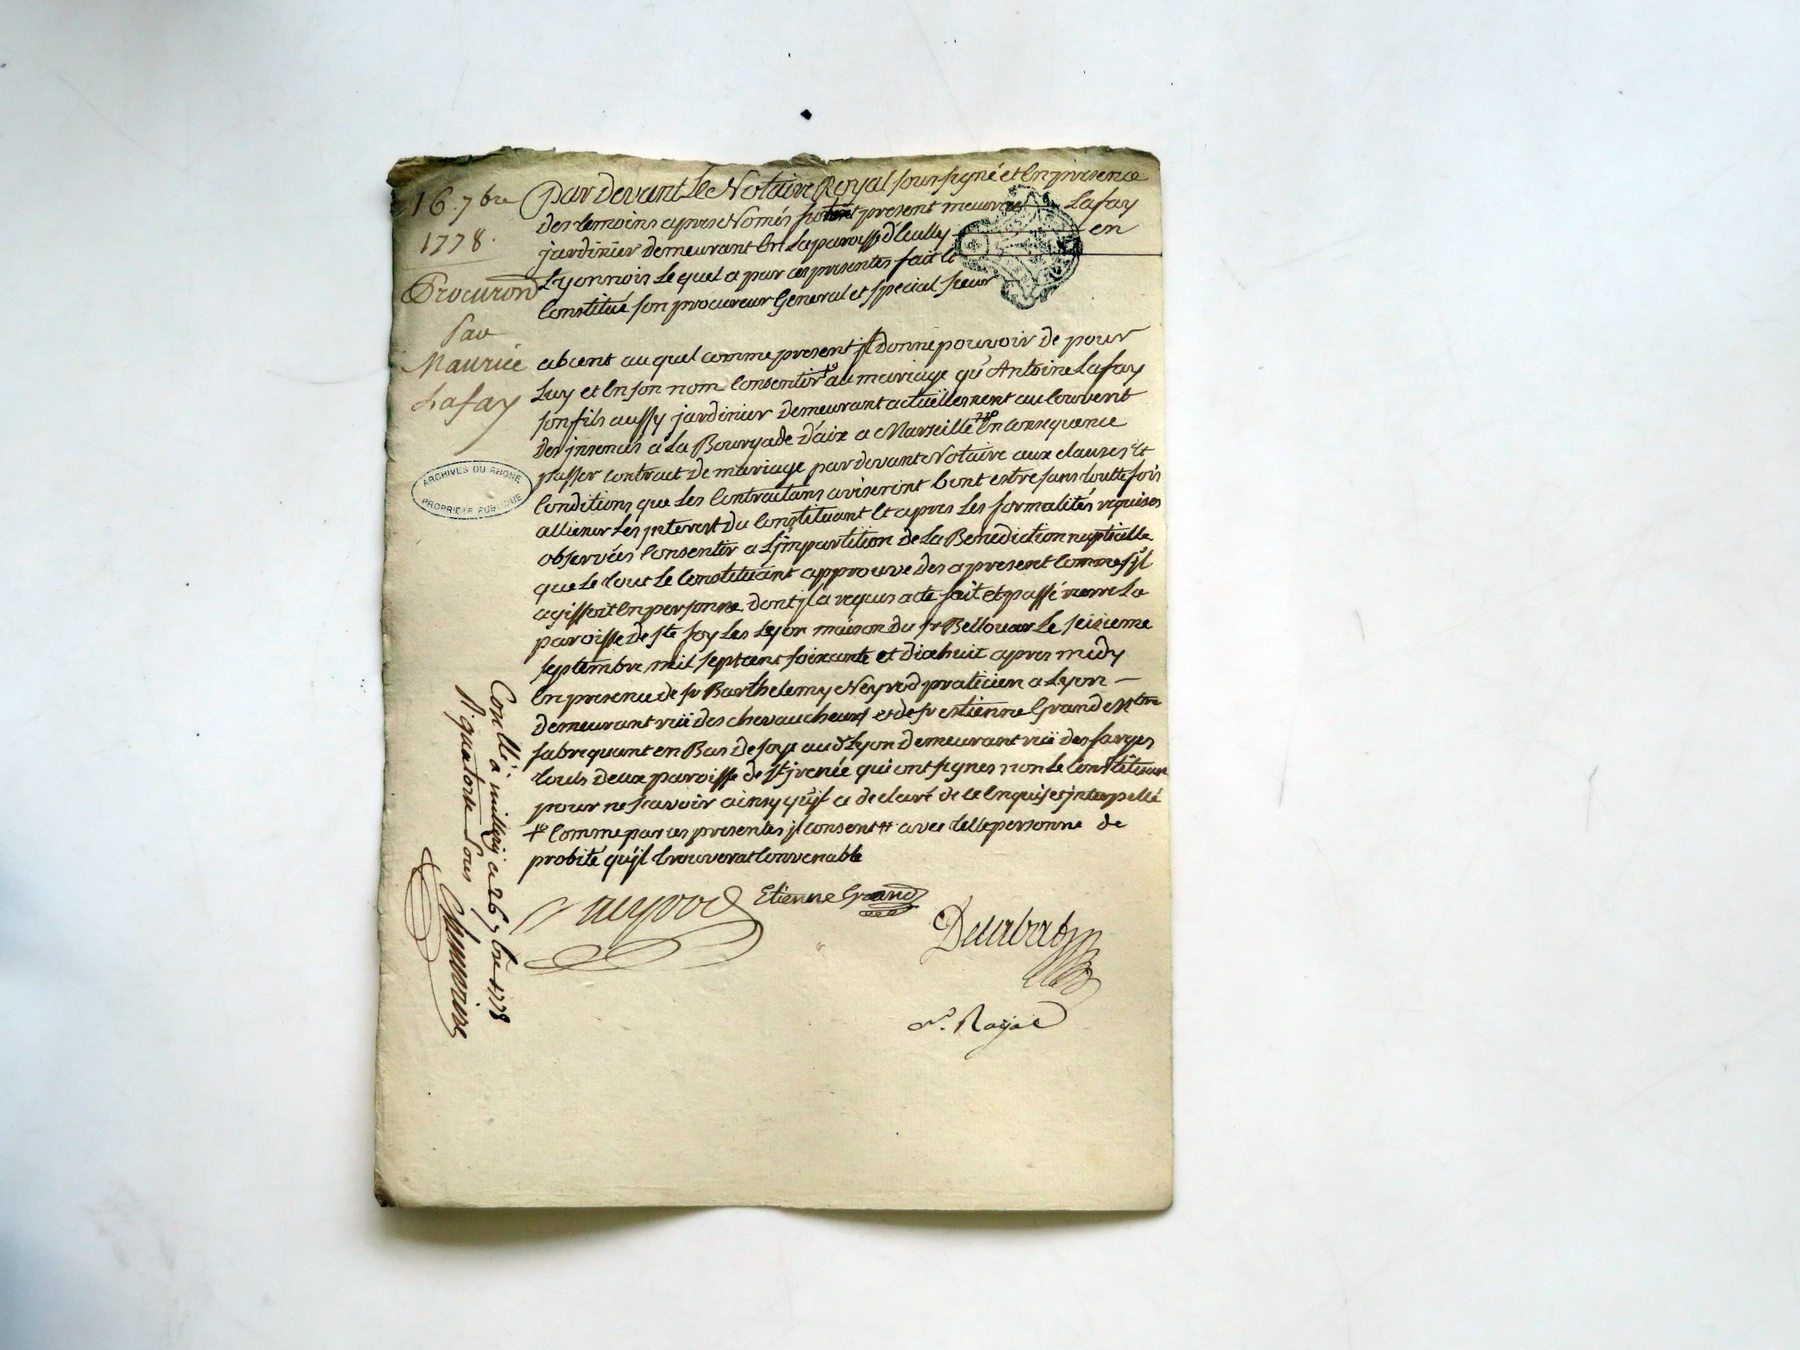 16. 7bre
1778.
Procuron
Par
Maurice
Lafay
Par devant Le Notaire Royal soussigné et En presence
des temoins apres Només present Lafay
jardinier demeurant En La paroisse d'Eculy en
Lyonnois Lequel a par ces presentes fait et
Constitué son procureur General et special sieur
absent auquel comme present jl donne pouvoir de pour
Luy et En son nom Consentir au mariage qu'Antoine Lafay
son fils aussy jardinier demeurant actuellement au Couvent
des jnsencés a La Bourgade d'aix a Marseille En consequence
passer contract de mariage par devant Notaire aux clauses et
Conditions que Les Contractans aviseront bont estre sans touttefois
alliener Les jnterest du Constituant Et apres Les formalités requises
observées Consentir a L'jmpartition de La Benediction nuptialle
que Le tout Le Constituant approuve des apresent Comme s'jl
agissoit En personne dont jl a requis acte fait et passé
paroisse de ste foy Les Lyon maison du sr Bellouar Le seisieme
septembre mil sept cent soixante et dixhuit apres midy
En presence de sr Barthelemy Neyrod praticien a Lyon —
demeurant ruë des chevaucheurs et de sr estienne Grand
fabriquant en Bas de soye au d. Lyon demeurant ruë des farges
touts deux paroisse de st jrenée qui ont signes non Le Constituant
pour ne scavoir ainsy qu'jl a declaré de ce Enquis et jnterpellé
Comme par ces presentes jl consent avec telle personne de
probité qu'jl trouverat Convenable
Neyrod Etienne Grand
Delabat
N. Royal
Conllé a millery ce 26 7bre 1778
R quatorse sous
ARCHIVES DU RHONE
PROPRIETE PUBLIQUE